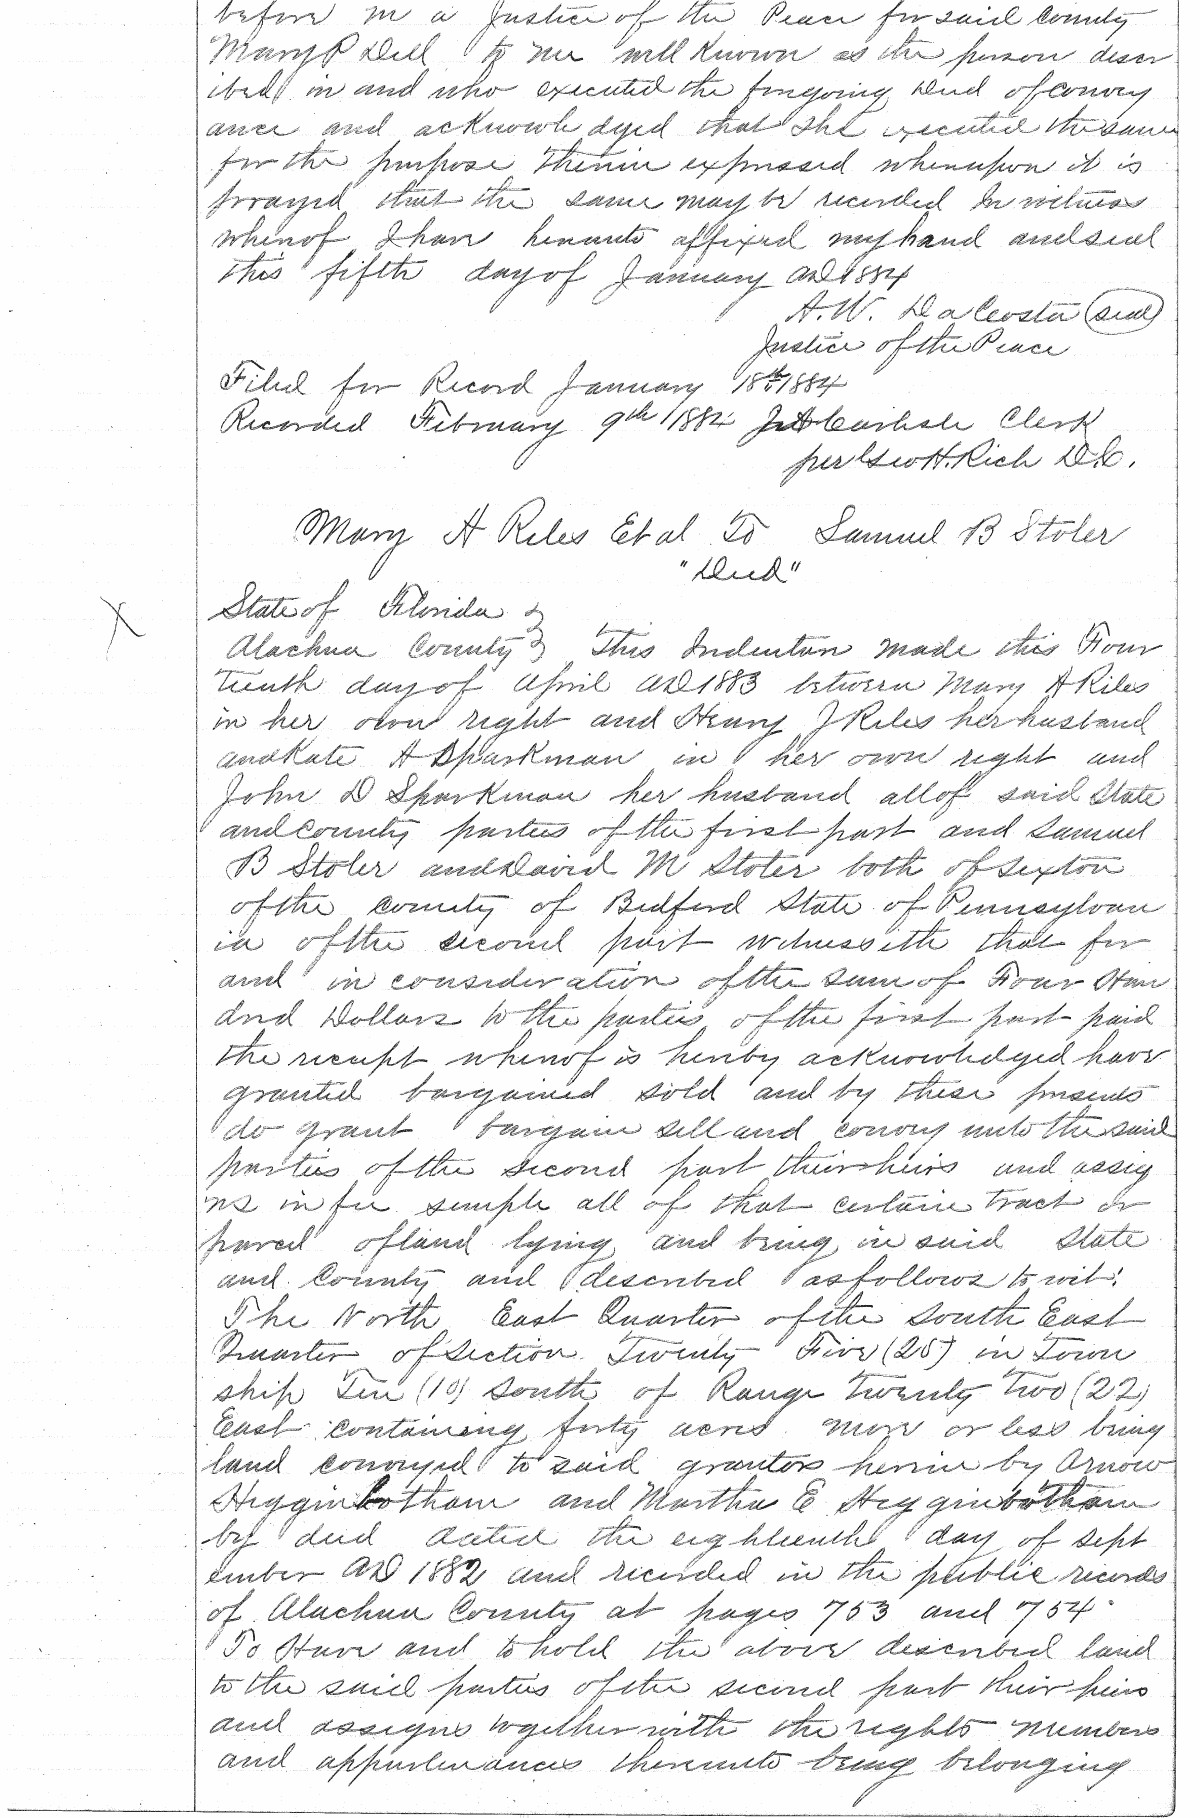 before m a Justice of the Peace for said County
Mary P Dell to me well known as the person descr
ibed in and who executed the foregoing Deed of convey
ance and acknowledged that she executed the same
for the purpose therein expressed whereupon it is
prayed that the same may be recorded In witness
whereof I have hereunto affixed my hand and seal
this fifth day of January AD 1884
A. W. Da Costa (seal)
Justice of the Peace
Filed for Record January 18th 1884
Recorded February 9th 1884 J A Carlisle Clerk
per Geo H. Rich D.C.
Mary A Riles Et al To Samuel B Stoler
"Deed"
State of Florida }
Alachua County } This Indenture made this Four
teenth day of April AD 1883 between Mary A Riles
in her own right and Henry J Riles her husband
and Kate A Sparkman in her own right and
John D Sparkman her husband all of said State
and County parties of the first part and Samuel
B Stoler and David M Stoler both of Sexton
of the County of Bedford State of Pennsylvan
ia of the second part witnesseth that for
and in consideration of the sum of Four Hun
dred Dollars to the parties of the first part paid
the receipt whereof is hereby acknowledged have
granted bargained sold and by these presents
do grant bargain sell and convey unto the said
parties of the second part their heirs and assig
ns in fee simple all of that certain tract or
parcel of land lying and being in said State
and County and described as follows to wit:
The North East Quarter of the South East
Quarter of Section Twenty Five (25) in Town
ship Ten (10) South of Range Twenty Two (22)
East containing forty acres more or less being
land conveyed to said grantors herein by Arnow
Higginbotham and Martha E Higginbotham
by deed dated the eighteenth day of Sept
ember AD 1882 and recorded in the public records
of Alachua County at pages 753 and 754
To Have and to hold the above described land
to the said parties of the second part their heirs
and assigns together with the rights members
and appurtenances thereunto being belonging